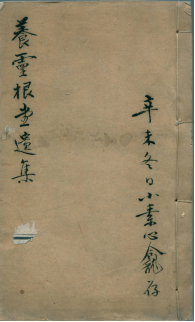 養靈根堂遺集
辛未冬日小素心龕存